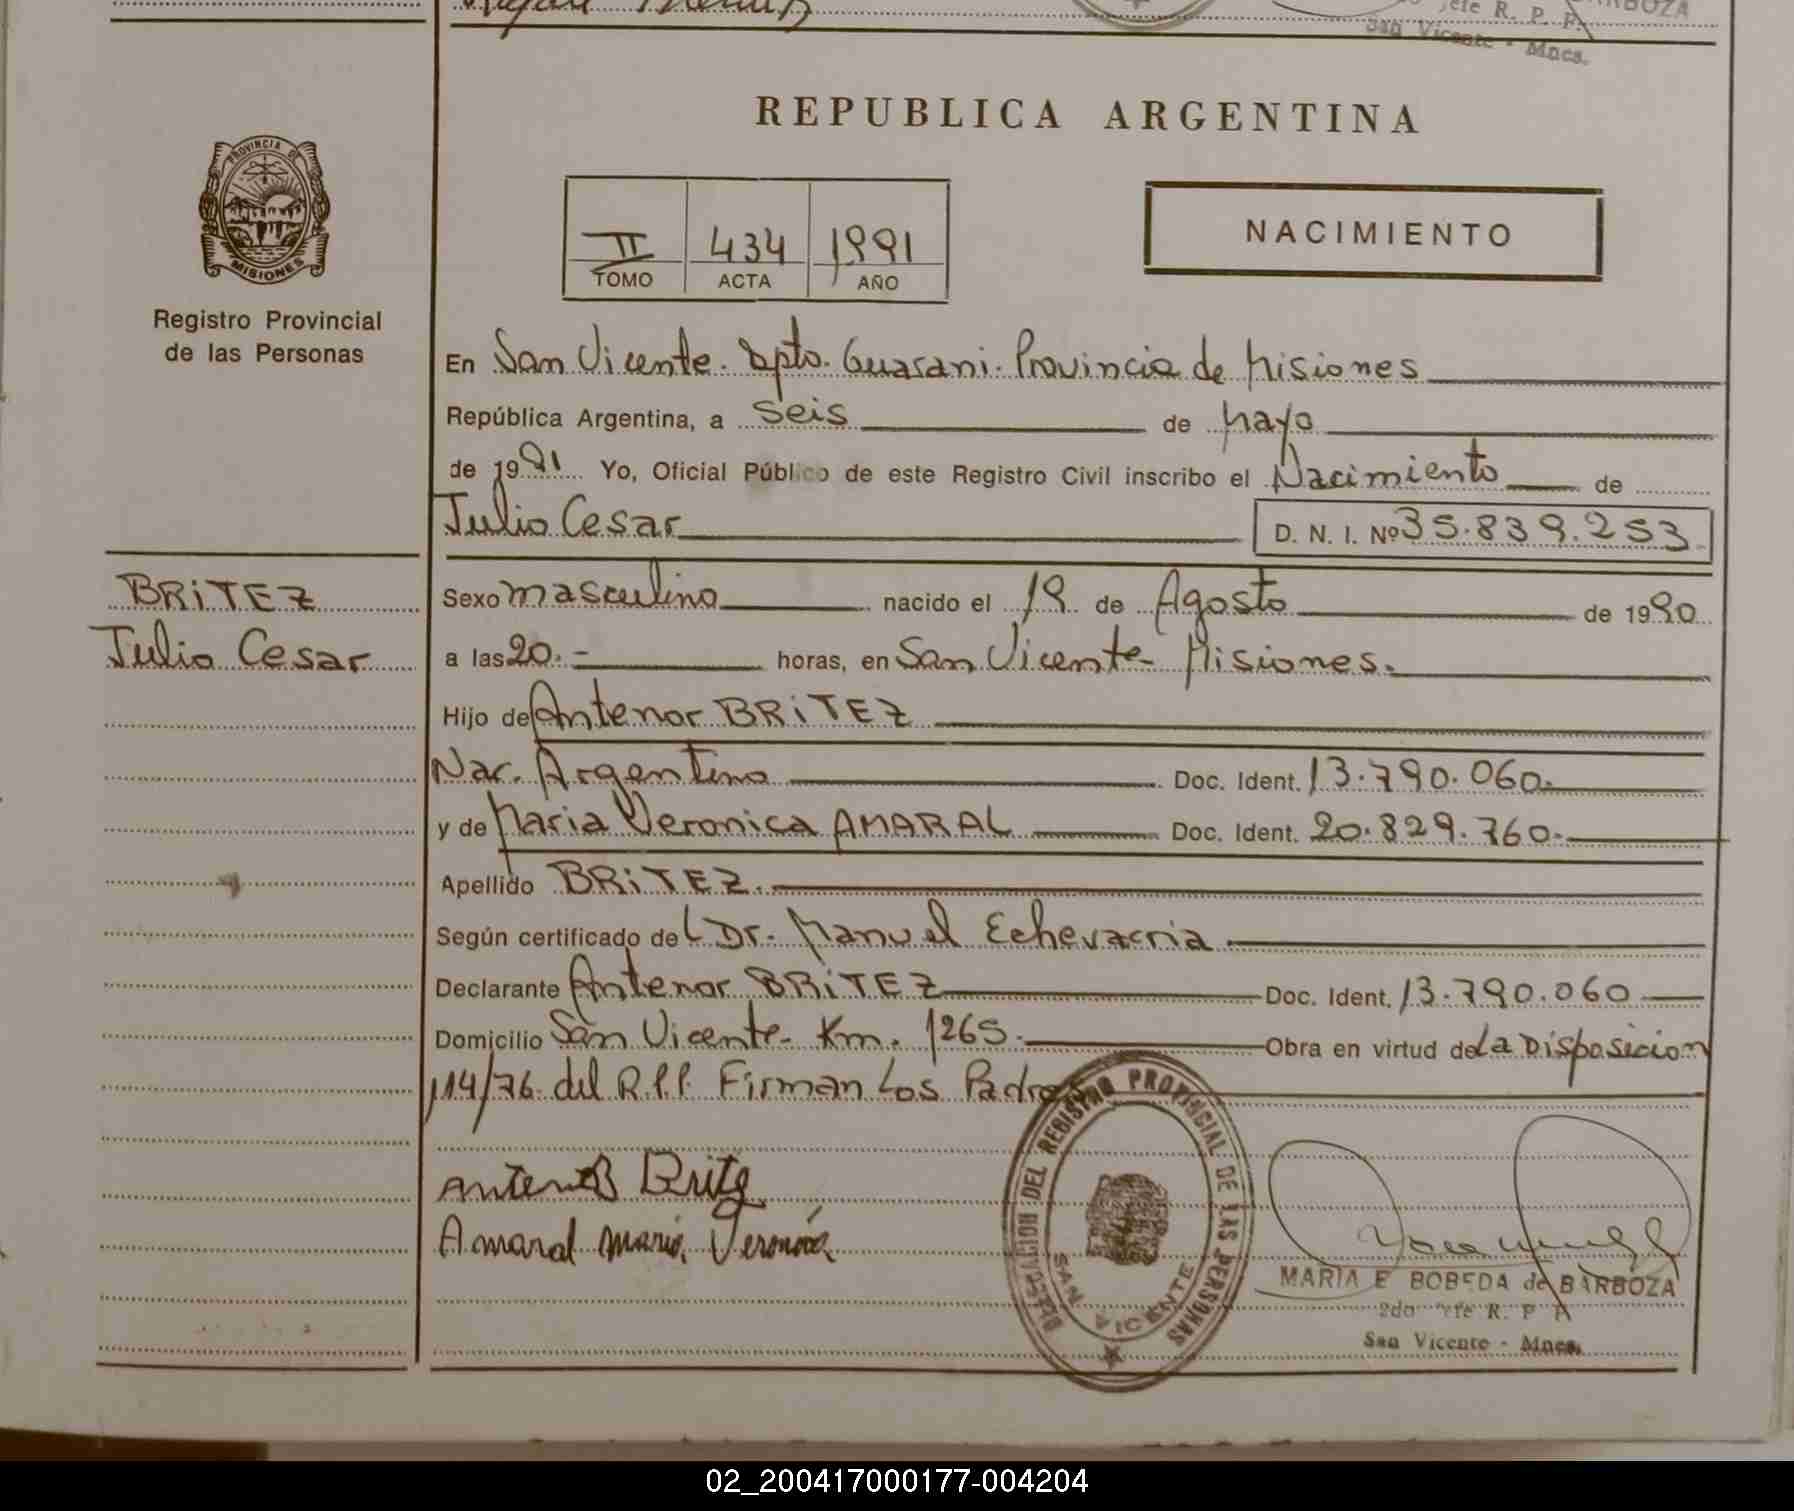 BARBOZA
Jefe R. P. P.
San Vicente - Mnes.
REPUBLICA ARGENTINA
PROVINCIA DE
MISIONES
Registro Provincial
de las Personas
II 434 1991
TOMO ACTA AÑO
NACIMIENTO
En San Vicente. Dpto. Guarani. Provincia de Misiones
República Argentina, a seis de Mayo
de 1991 Yo, Oficial Público de este Registro Civil inscribo el Nacimiento de
Julio Cesar D. N. I. Nº 35.839.253
BRiTEZ
Julio Cesar
Sexo masculino nacido el 19 de Agosto de 1990
a las 20.- horas, en San Vicente- Misiones.
Hijo de Antenor BRiTEZ
Nac. Argentino Doc. Ident. 13.790.060.
y de Maria Veronica AMARAL Doc. Ident. 20.829.760.
Apellido BRiTEZ.
Según certificado del Dr. Manuel Echevarria
Declarante Antenor BRiTEZ Doc. Ident. 13.790.060
Domicilio San Vicente- Km. 1265. Obra en virtud de La Disposicion
114/76. del R.P.P. Firman Los Padres
Antenor Britez
Amaral Maria Veronica
DELEGACION DEL REGISTRO PROVINCIAL DE LAS PERSONAS
SAN VICENTE
MARIA E BOBEDA de BARBOZA
2do Jefe R. P. P.
San Vicente - Mnes.
02_200417000177-004204